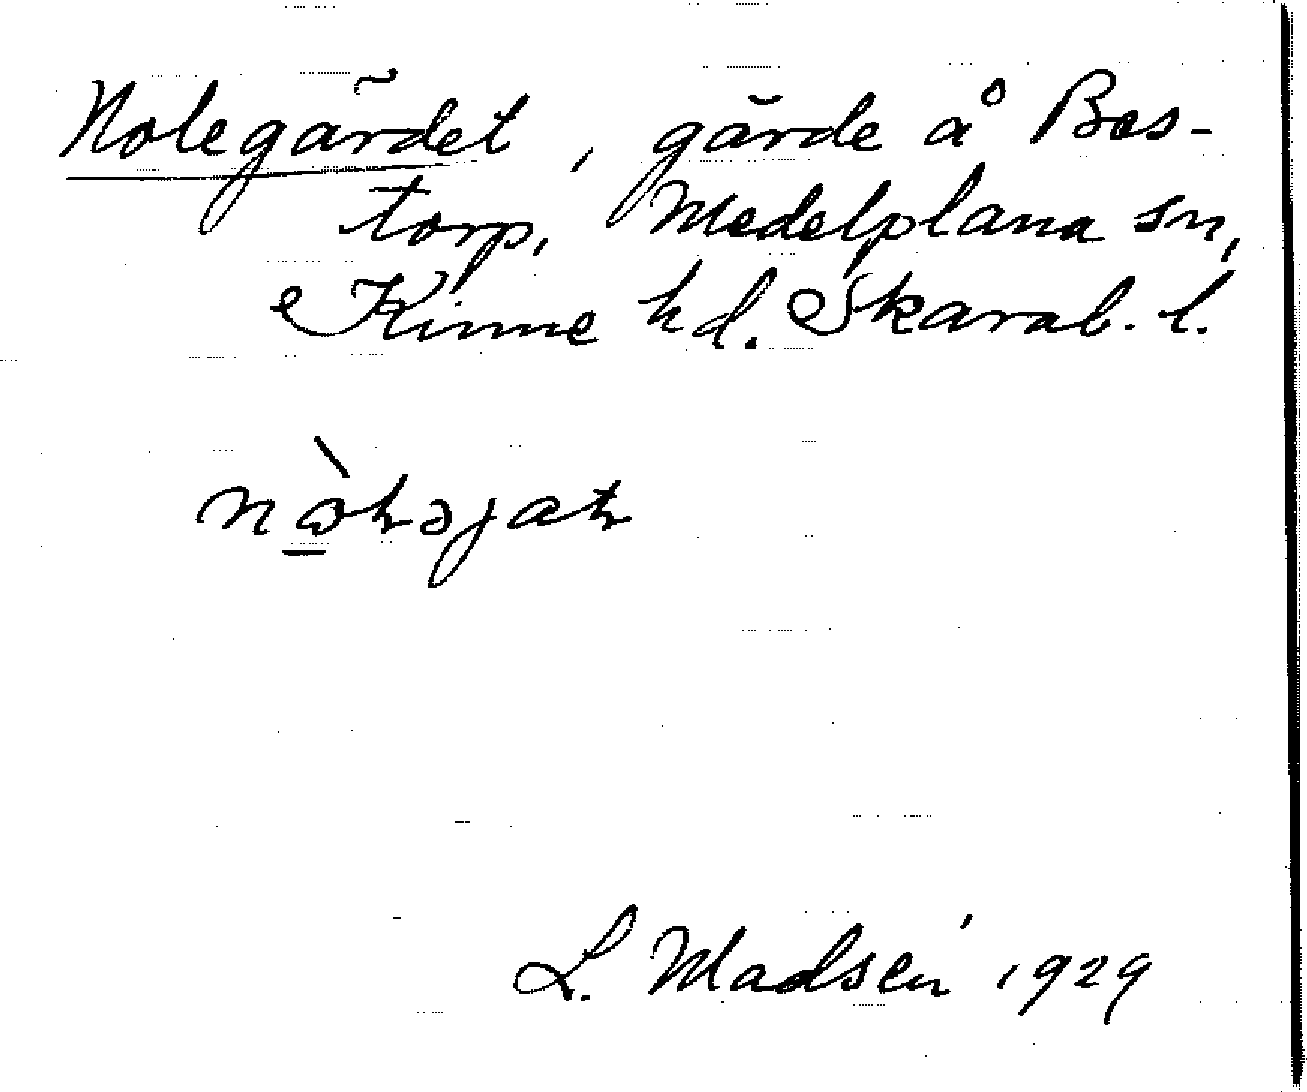 Nolegärdet, gärde å Bes-
torp, Medelplana sn,
Kinne hd. Skarab. l.
L. Madsén 1929